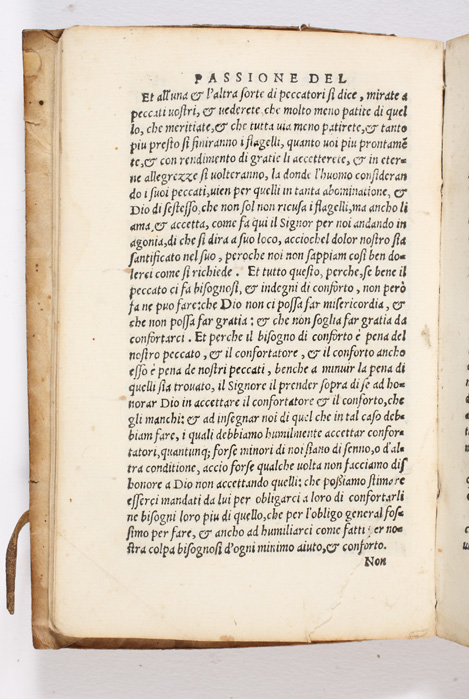 PASSIONE DEL
Et all'una & l'altra sorte di peccatori si dice, mirate a
peccati uostri, & uederete che molto meno patite di quel
lo, che meritiate, & che tutta uia meno patirete, & tanto
piu presto si finiranno i flagelli, quanto uoi piu prontamē
te, & con rendimento di gratie li accetterete, & in eter=
ne allegrezze si uolteranno, la donde l'huomo consideran
do i suoi peccati, uien per quelli in tanta abominatione, &
Dio di sestesso, che non sol non ricusa i flagelli, ma ancho li
ama, & accetta, come fa qui il Signor per noi andando in
agonia, di che si dira a suo loco, acciochel dolor nostro sia
santificato nel suo, peroche noi non sappiam cosi ben do=
lerci come si richiede. Et tutto questo, perche, se bene il
peccato ci fa bisognosi, & indegni di conforto, non però
fa ne puo fare: che Dio non ci possa far misericordia, &
che non possa far gratia: & che non soglia far gratia da
confortarci. Et perche il bisogno di conforto è pena del
nostro peccato, & il confortatore, & il conforto ancho
esso è pena de nostri peccati, benche a minuir la pena di
quelli sia trouato, il Signore il prender sopra di se ad ho=
norar Dio in accettare il confortatore & il conforto, che
gli manchi: & ad insegnar noi di quel che in tal caso deb=
biam fare, i quali debbiamo humilmente accettar confor=
tatori, quantunq; forse minori di noi siano di senno, o d'al
tra conditione, accio forse qualche uolta non facciamo dis
honore a Dio non accettando quelli: che possiamo stimare
esserci mandati da lui per obligarci a loro di confortarli
ne bisogni loro piu di quello, che per l'obligo general fos=
simo per fare, & ancho ad humiliarci come fatti per no=
stra colpa bisognosi d'ogni minimo aiuto, & conforto.
Non